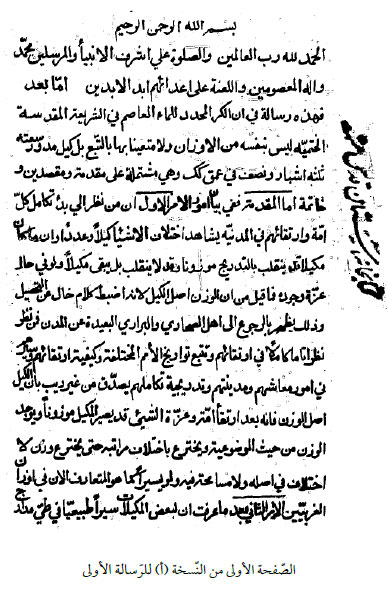 بسم الله الرحمن الرحيم
الحمد لله رب العالمين والصلوة على اشرف الانبيأ والمرسلين محمد
واله المعصومين واللعنة على اعدائهم ابد الابدين امّا بعد
فهذه رسالة في ان الكر المحدد للماء العاصم في الشريعة المقدسة
الختميّه ليس بنفسه من الاوزان ولا متعينا بها بالتبع بل كيل مدور سعته
ثلثه اشبار ونصف في عمق كك وهي مشتملة على مقدمة ومقصدين و
خاتمة اما المقدمة ففي بيان امور الامر الاول ان من نظر الى بدء تكامل كلّ
امة وارتقائهم في المدنيّه يشاهد اختلاف الاشيأ كيلا وعددا وان ما كان
مكيلا قد ينقلب بالتدريج موزونا وقد لا ينقلب بل يبقى مكيلا ولو في حالة
عزّة وجوده فما قيل من ان الوزن اصل الكيل لانه اضبط كلام خال عن التحصيل
وذلك يظهر بالرجوع الى اهل الصحارى والبرارى البعيدة عن المدن فمن نظر
نظراتا ما كاملا في ارتقائهم وتتبع تواريخ الأمم المختلفة وكيفية ارتقائهم وسيرهم
في امور معاشهم ومدينتهم وتدريجية تكاملهم يصدّق من غير ريب بأن الكيل
اصل الوزن فانه بعد ارتقأ امّة وعزّة الشيئى قد يصير المكيل موزونا ويوجد
الوزن من حيث الموضوعية ويخترع باختلاف مراتبه حتى يخترع وزن لا
اختلاف في اصله ولا مسامحة فيه ولو يسيرا كما هو المتعارف الان في اوزان
الغربيّين الامر الثاني بعد ما عرفت ان لبعض المكيلات سيراً طبيعيّا في طىّ مدارج
الصّفحة الأولى من النّسخة (أ) للرّسالة الأولى